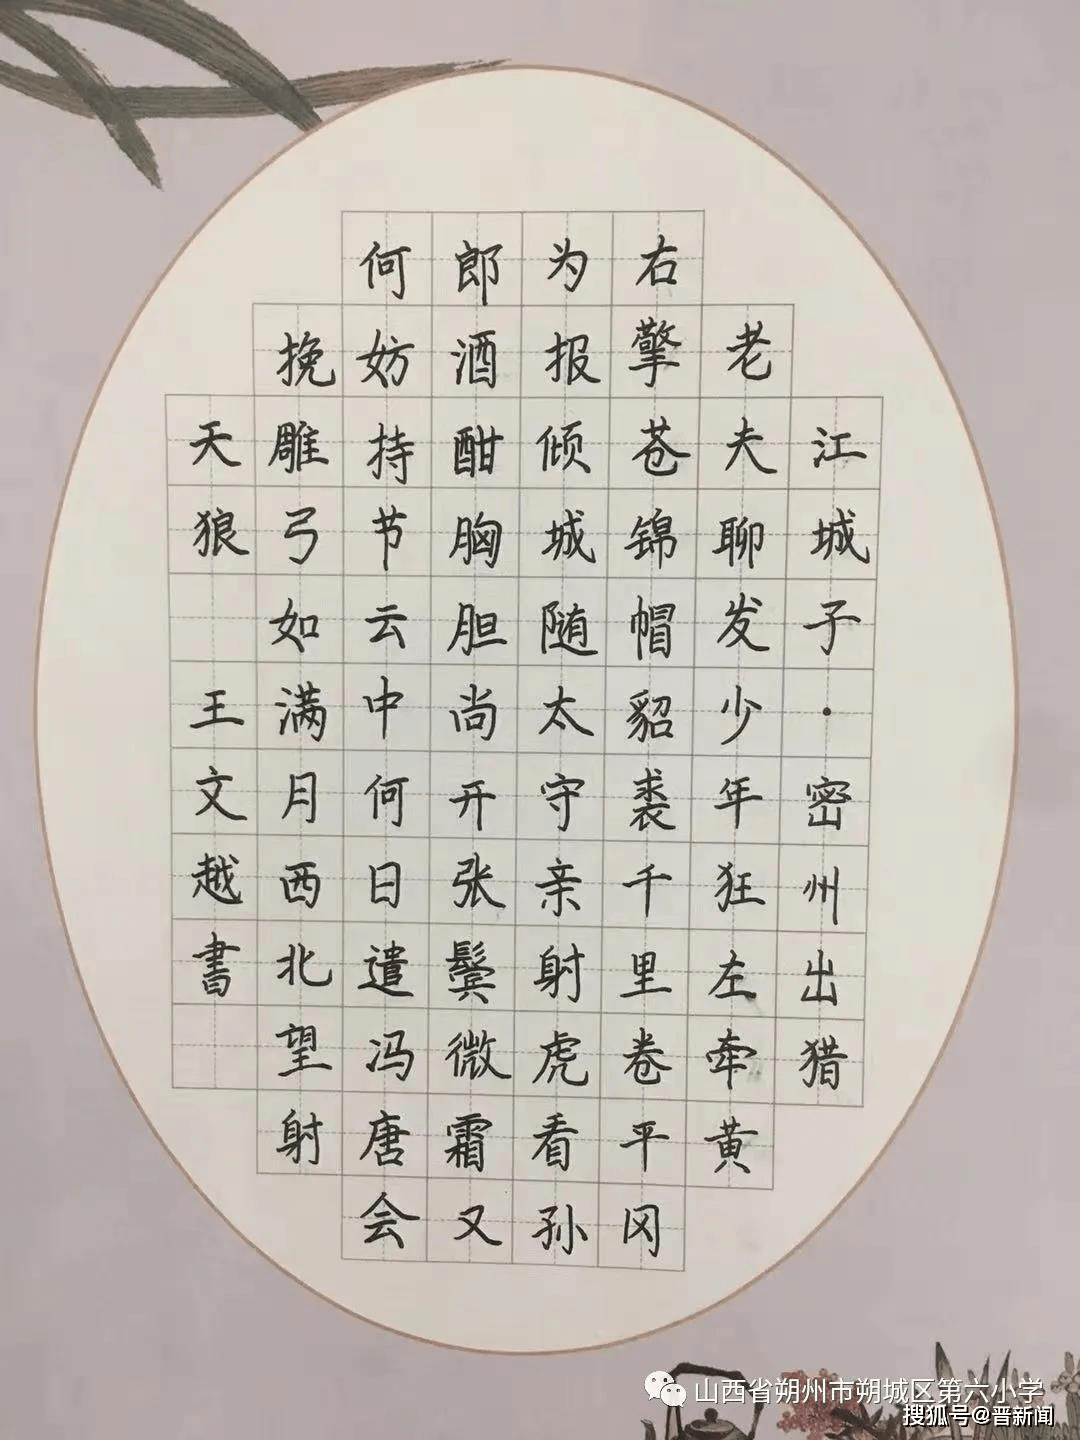 江城子·密州出猎
老夫聊发少年狂左牵黄
右擎苍锦帽貂裘千里卷平冈
为报倾城随太守亲射虎看孙
郎酒酣胸胆尚开张鬓微霜又
何妨持节云中何日遣冯唐会
挽雕弓如满月西北望射
天狼 王文越書
山西省朔州市朔城区第六小学
搜狐号@晋新闻